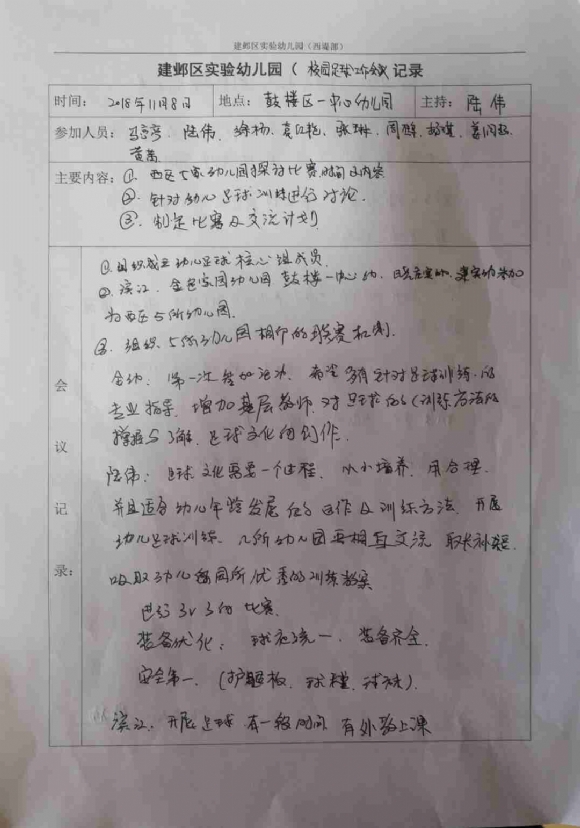 建邺区实验幼儿园（西堤部）
建邺区实验幼儿园（校园足球工作会议记录
时间： 2018年11月8日 地点： 鼓楼区一中心幼儿园 主持： 陆伟
参加人员： 陆伟、徐杨、袁红艳、张琳、周
主要内容：①、西区七家幼儿园探讨比赛时间及内容
②、针对幼儿足球训练进行讨论.
③、制定比赛及交流计划
会议记录：
①组织成立幼儿足球核心组成员.
②、滨江、金色家园幼儿园 鼓楼一中心幼、
为西区5所幼儿园.
③、组织5所幼儿园相伴的联赛机制.
第一次参加活动、希望多有针对足球训练的
专业指导、增加基层教师对足球的（训练方法的
掌握与了解、足球文化的创作.
陆伟： 足球文化需要一个过程、从小培养、用合理.
并且适合幼儿年龄发展的动作及训练方法、开展
幼儿足球训练、几所幼儿园要相互交流 取长补短.
吸取幼儿园所优秀的训练教案
进行3V3的比赛.
装备优化： 球衣统一、装备齐全.
安全第一、（护腿板、球鞋、球袜）.
滨江： 开展足球有一段时间 有外教上课